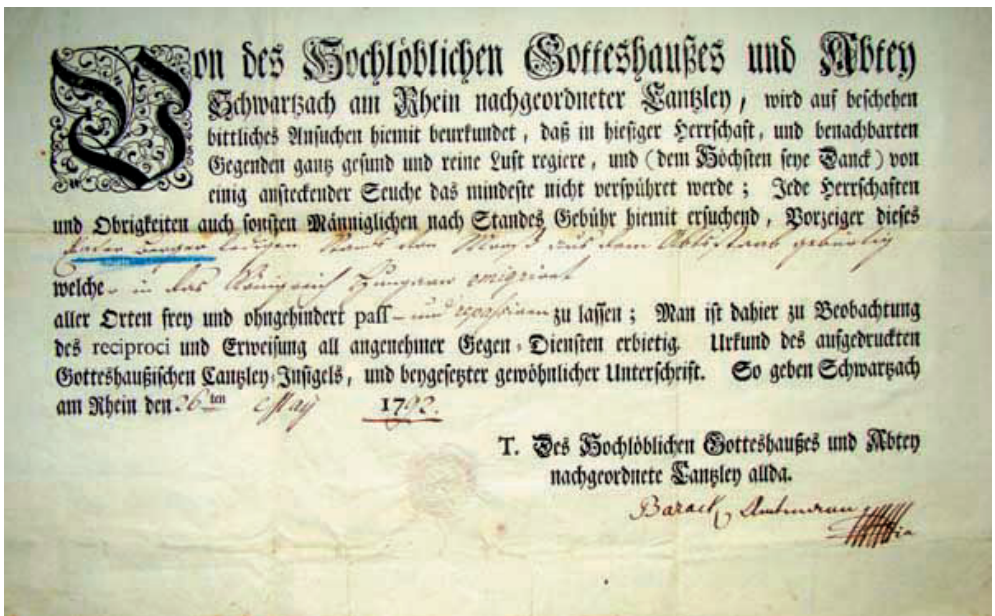 Von des Hochlöblichen Gotteshaußes und Abtey
Schwartzach am Rhein nachgeordneter Cantzley, wird auf beschehen
bittliches Ansuchen hiemit beurkundet, daß in hiesiger Herrschaft, und benachbarten
Gegenden gantz gesund und reine Luft regiere, und (dem Höchsten seye Danck) von
einig ansteckender Seuche das mindeste nicht verspühret werde; Jede Herrschaften
und Obrigkeiten auch sonsten Männiglichen nach Standes Gebühr hiemit ersuchend, Vorzeiger dieses
ledigen Stands von aus dem Abtsstaab gebürtig
welcher in das Königreich Hungarn emigrirt
aller Orten frey und ohngehindert pass- und repassiren zu lassen; Man ist dahier zu Beobachtung
des reciproci und Erweisung all angenehmer Gegen-Diensten erbietig. Urkund des aufgedruckten
Gotteshaußischen Cantzley-Insigels, und beygesetzter gewöhnlicher Unterschrift. So geben Schwartzach
am Rhein den 26ten May 1792.
T. Des Hochlöblichen Gotteshaußes und Abtey
nachgeordnete Cantzley allda.
Barack, Amtmann